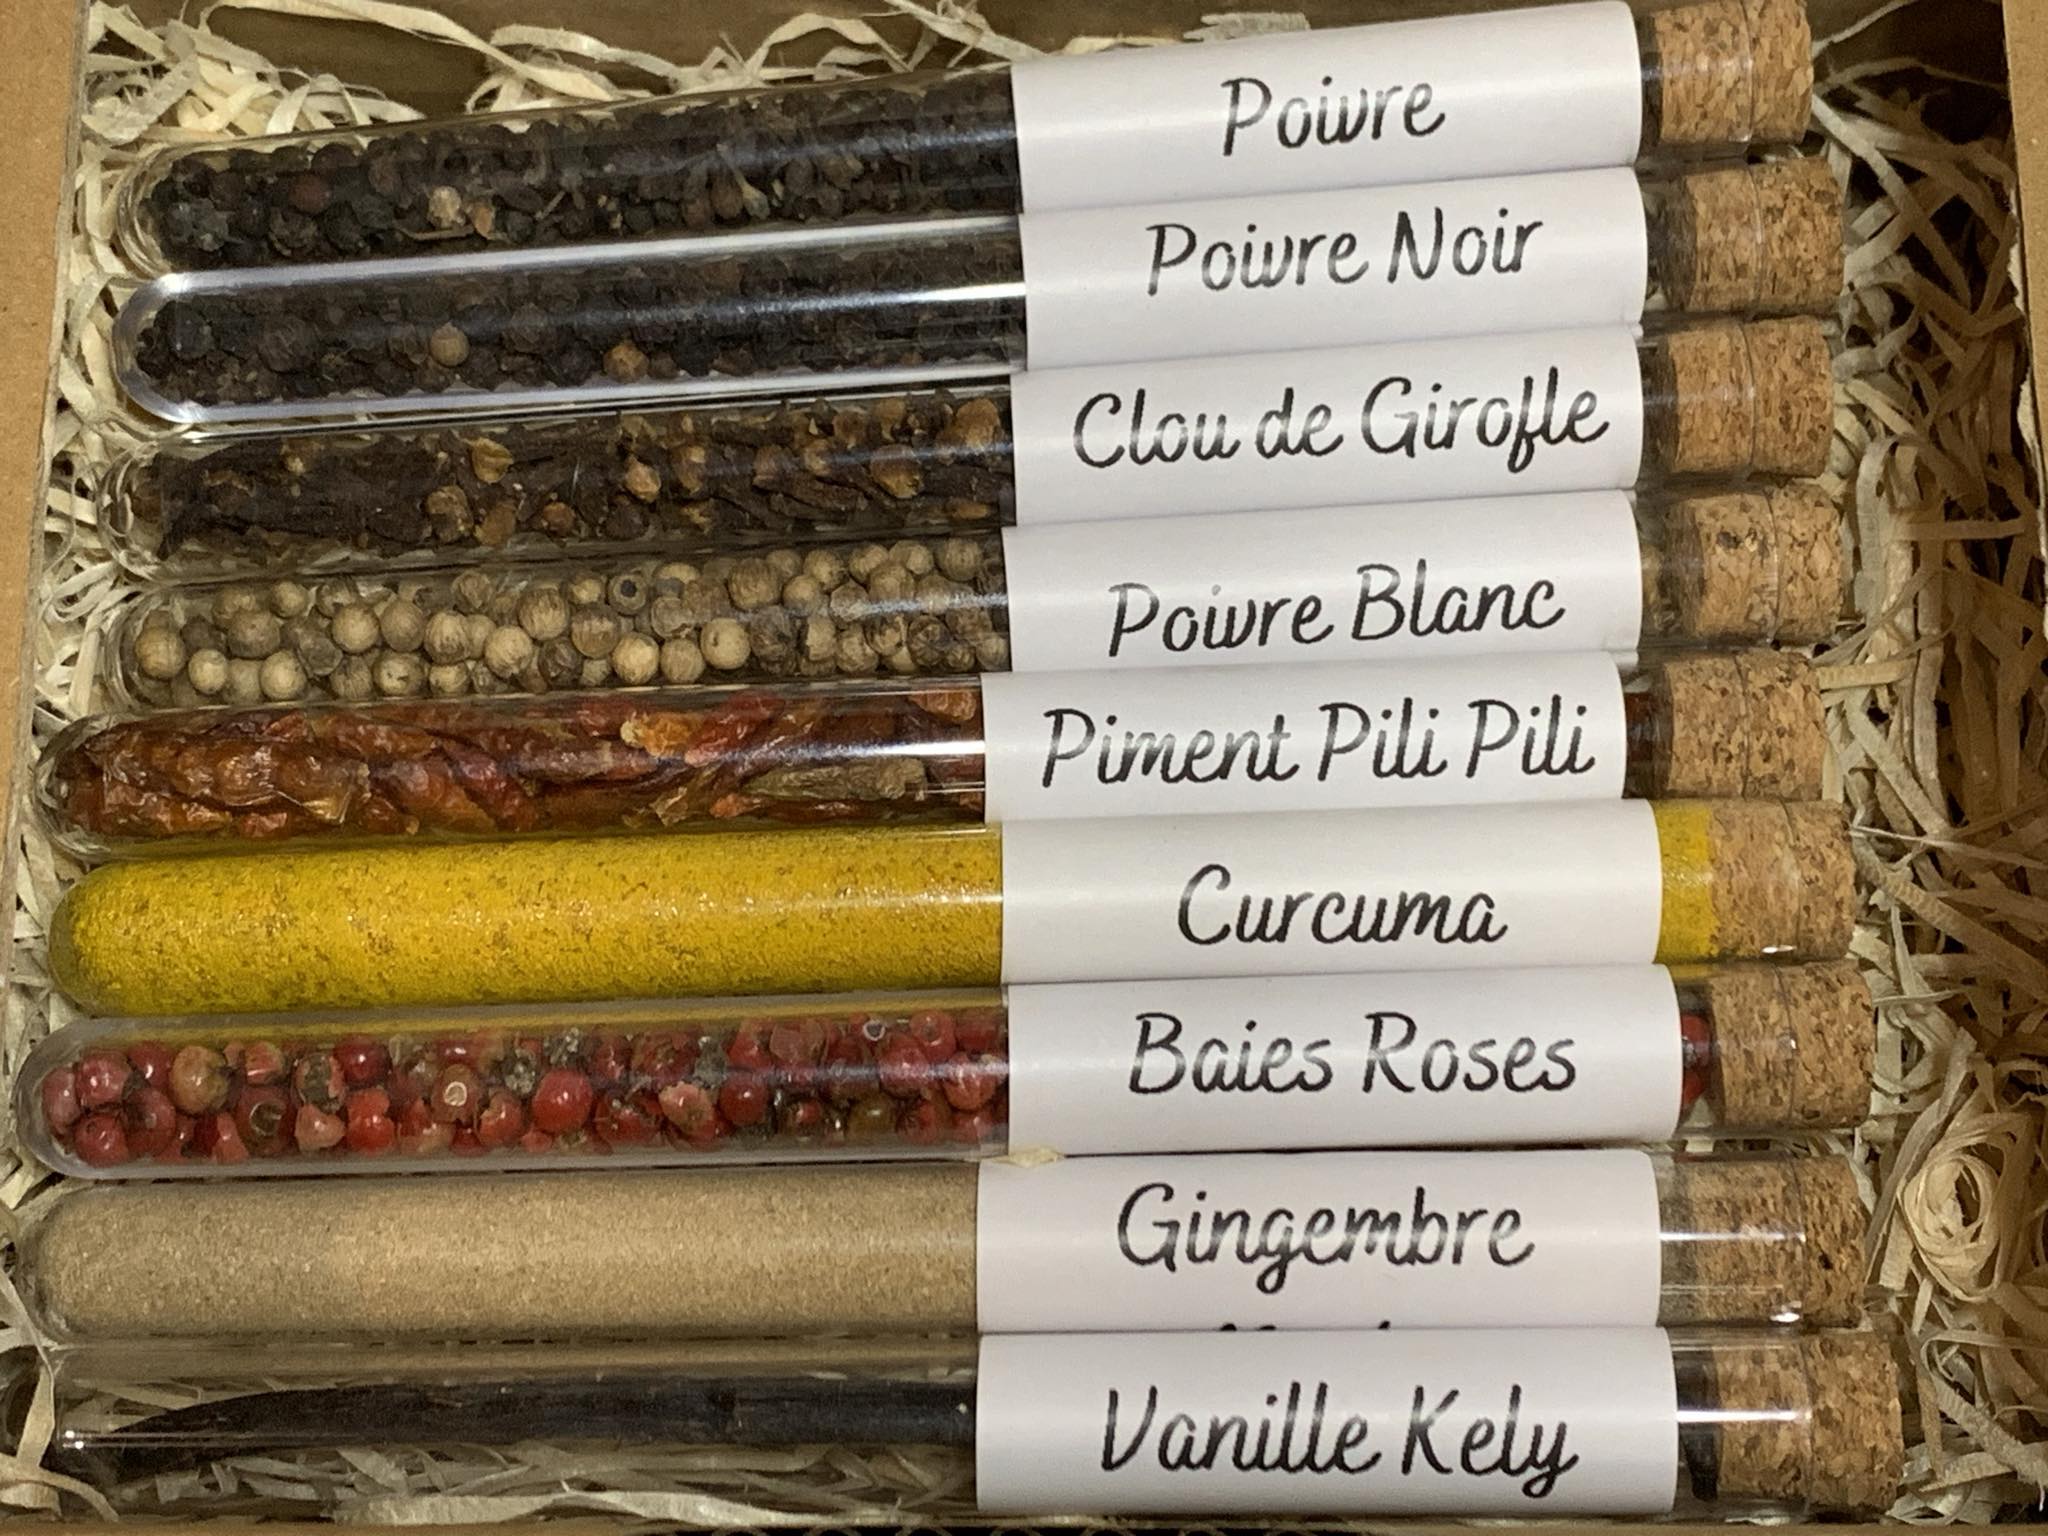 Poivre
Poivre Noir
Clou de Girofle
Poivre Blanc
Piment Pili Pili
Curcuma
Baies Roses
Gingembre
Vanille Kely